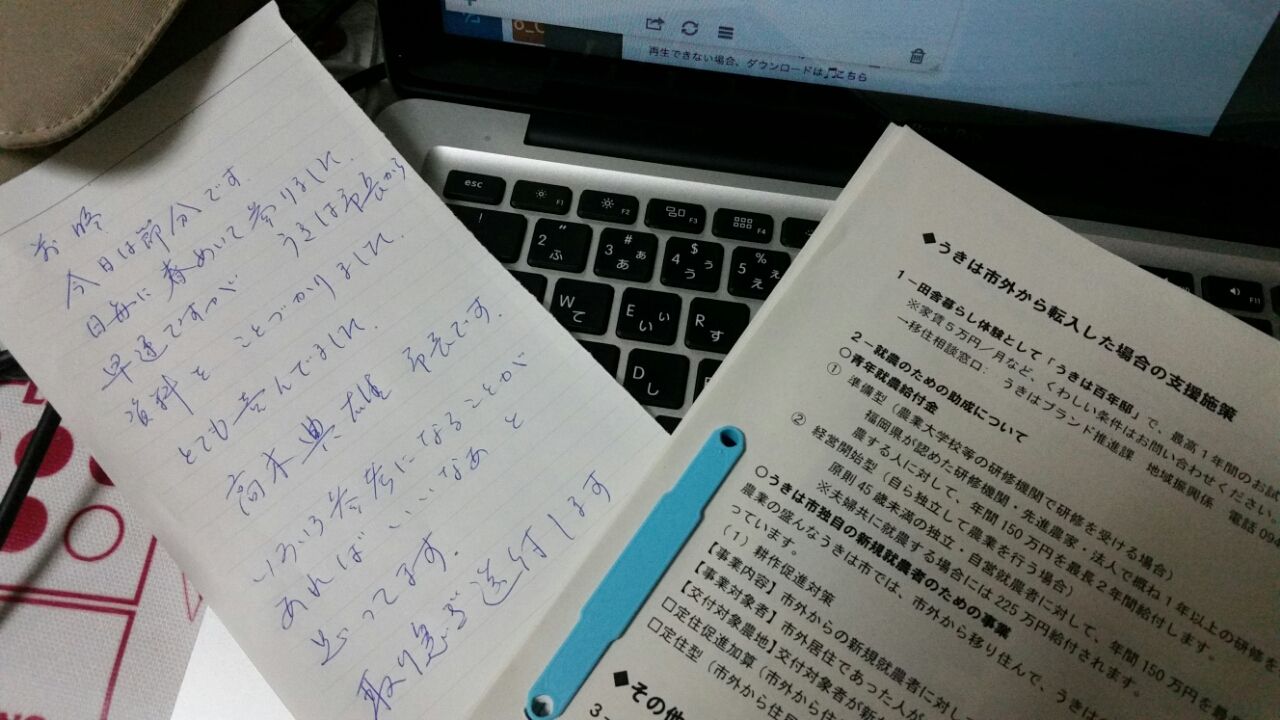 前略
今日は節分です。
日毎に春めいて参りました。
早速ですが うきは市長から
資料をことづかりました。
とても喜んでました。
高木典雄 市長です。
いろいろ参考になることが
あればいいなあと
思ってます。
取り急ぎ送付します
再生できない場合、ダウンロードは🎵こちら
esc
F1
F2
F3
F4
F11
!
2 " ふ
3 # ぁ あ
4 $ ぅ う
5 % ぇ え
W て
E ぃ い
R す
D し
◆うきは市外から転入した場合の支援施策
1－田舎暮らし体験として「うきは百年邸」で、最高1年間のお試
※家賃5万円／月など、くわしい条件はお問い合わせください。
→移住相談窓口: うきはブランド推進課 地域振興係 電話094
2－就農のための助成について
〇青年就農給付金
① 準備型（農業大学校等の研修機関で研修を受ける場合）
福岡県が認めた研修機関・先進農家・法人で概ね1年以上の研修を
農する人に対して、年間150万円を最長2年間給付します。
② 経営開始型（自ら独立して農業を行う場合）
原則45歳未満の独立・自営就農者に対して、年間150万円を最
※夫婦共に就農する場合には225万円給付されます。
〇うきは市独自の新規就農者のための事業
農業の盛んなうきは市では、市外から移り住んで、うきは
っています。
（1）耕作促進対策
【事業内容】市外からの新規就農者に対し
【事業対象者】市外居住であった人が
【交付対象農地】交付対象者が新
□定住促進加算（市外から住
□定住型（市外から住民
◆その他
3－